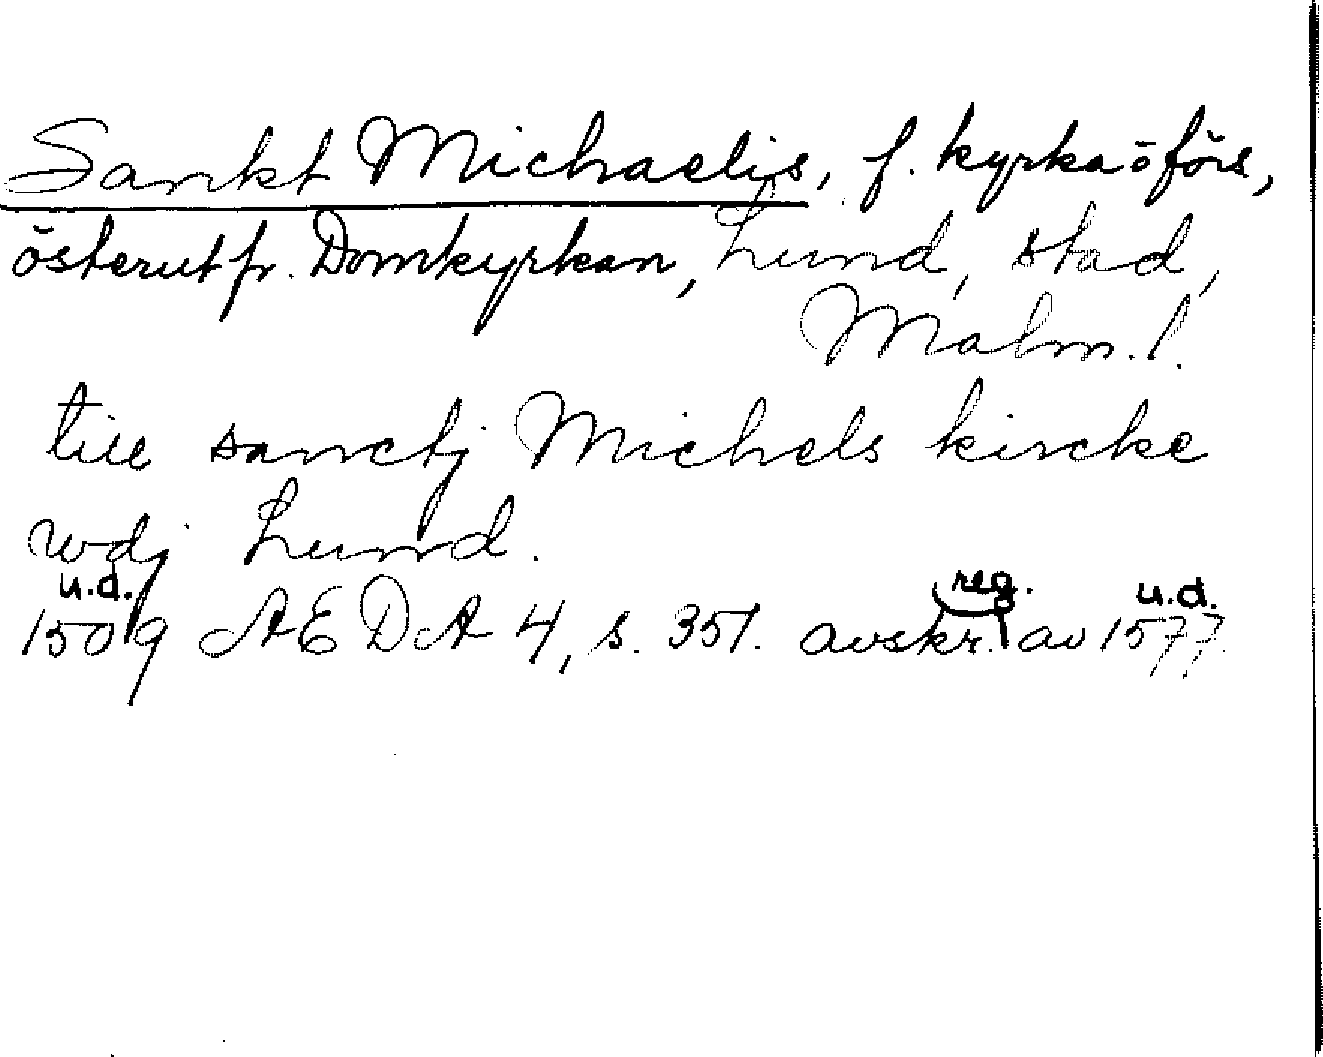 Sankt Michaelis, f. kyrka o förs,
österut fr. Domkyrkan, Lund, stad,
Malm. l.
till sanctj Michels kircke
wdj Lund.
1509 u.d. AEDA 4, s. 351. avskr. reg. av 1577 u.d.